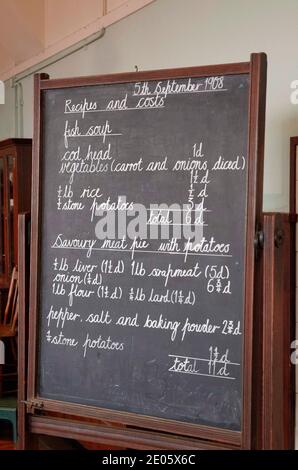 5th September 1908
Recipes and costs
fish soup
cod head 1d
vegetables (carrot and onions diced) 1½d
¼lb rice ½d
¼ stone potatoes 3d
total 6d
Savoury meat pie with potatoes
¼lb liver (1½d) 1lb soapmeat (5d)
onion (¼d) 6¾d
1lb flour (1½d) ¼lb lard (1½d)
pepper, salt and baking powder 2¾d
¼ stone potatoes
1½d
total 11d
alamy
Image ID: 2E05X6C
www.alamy.com